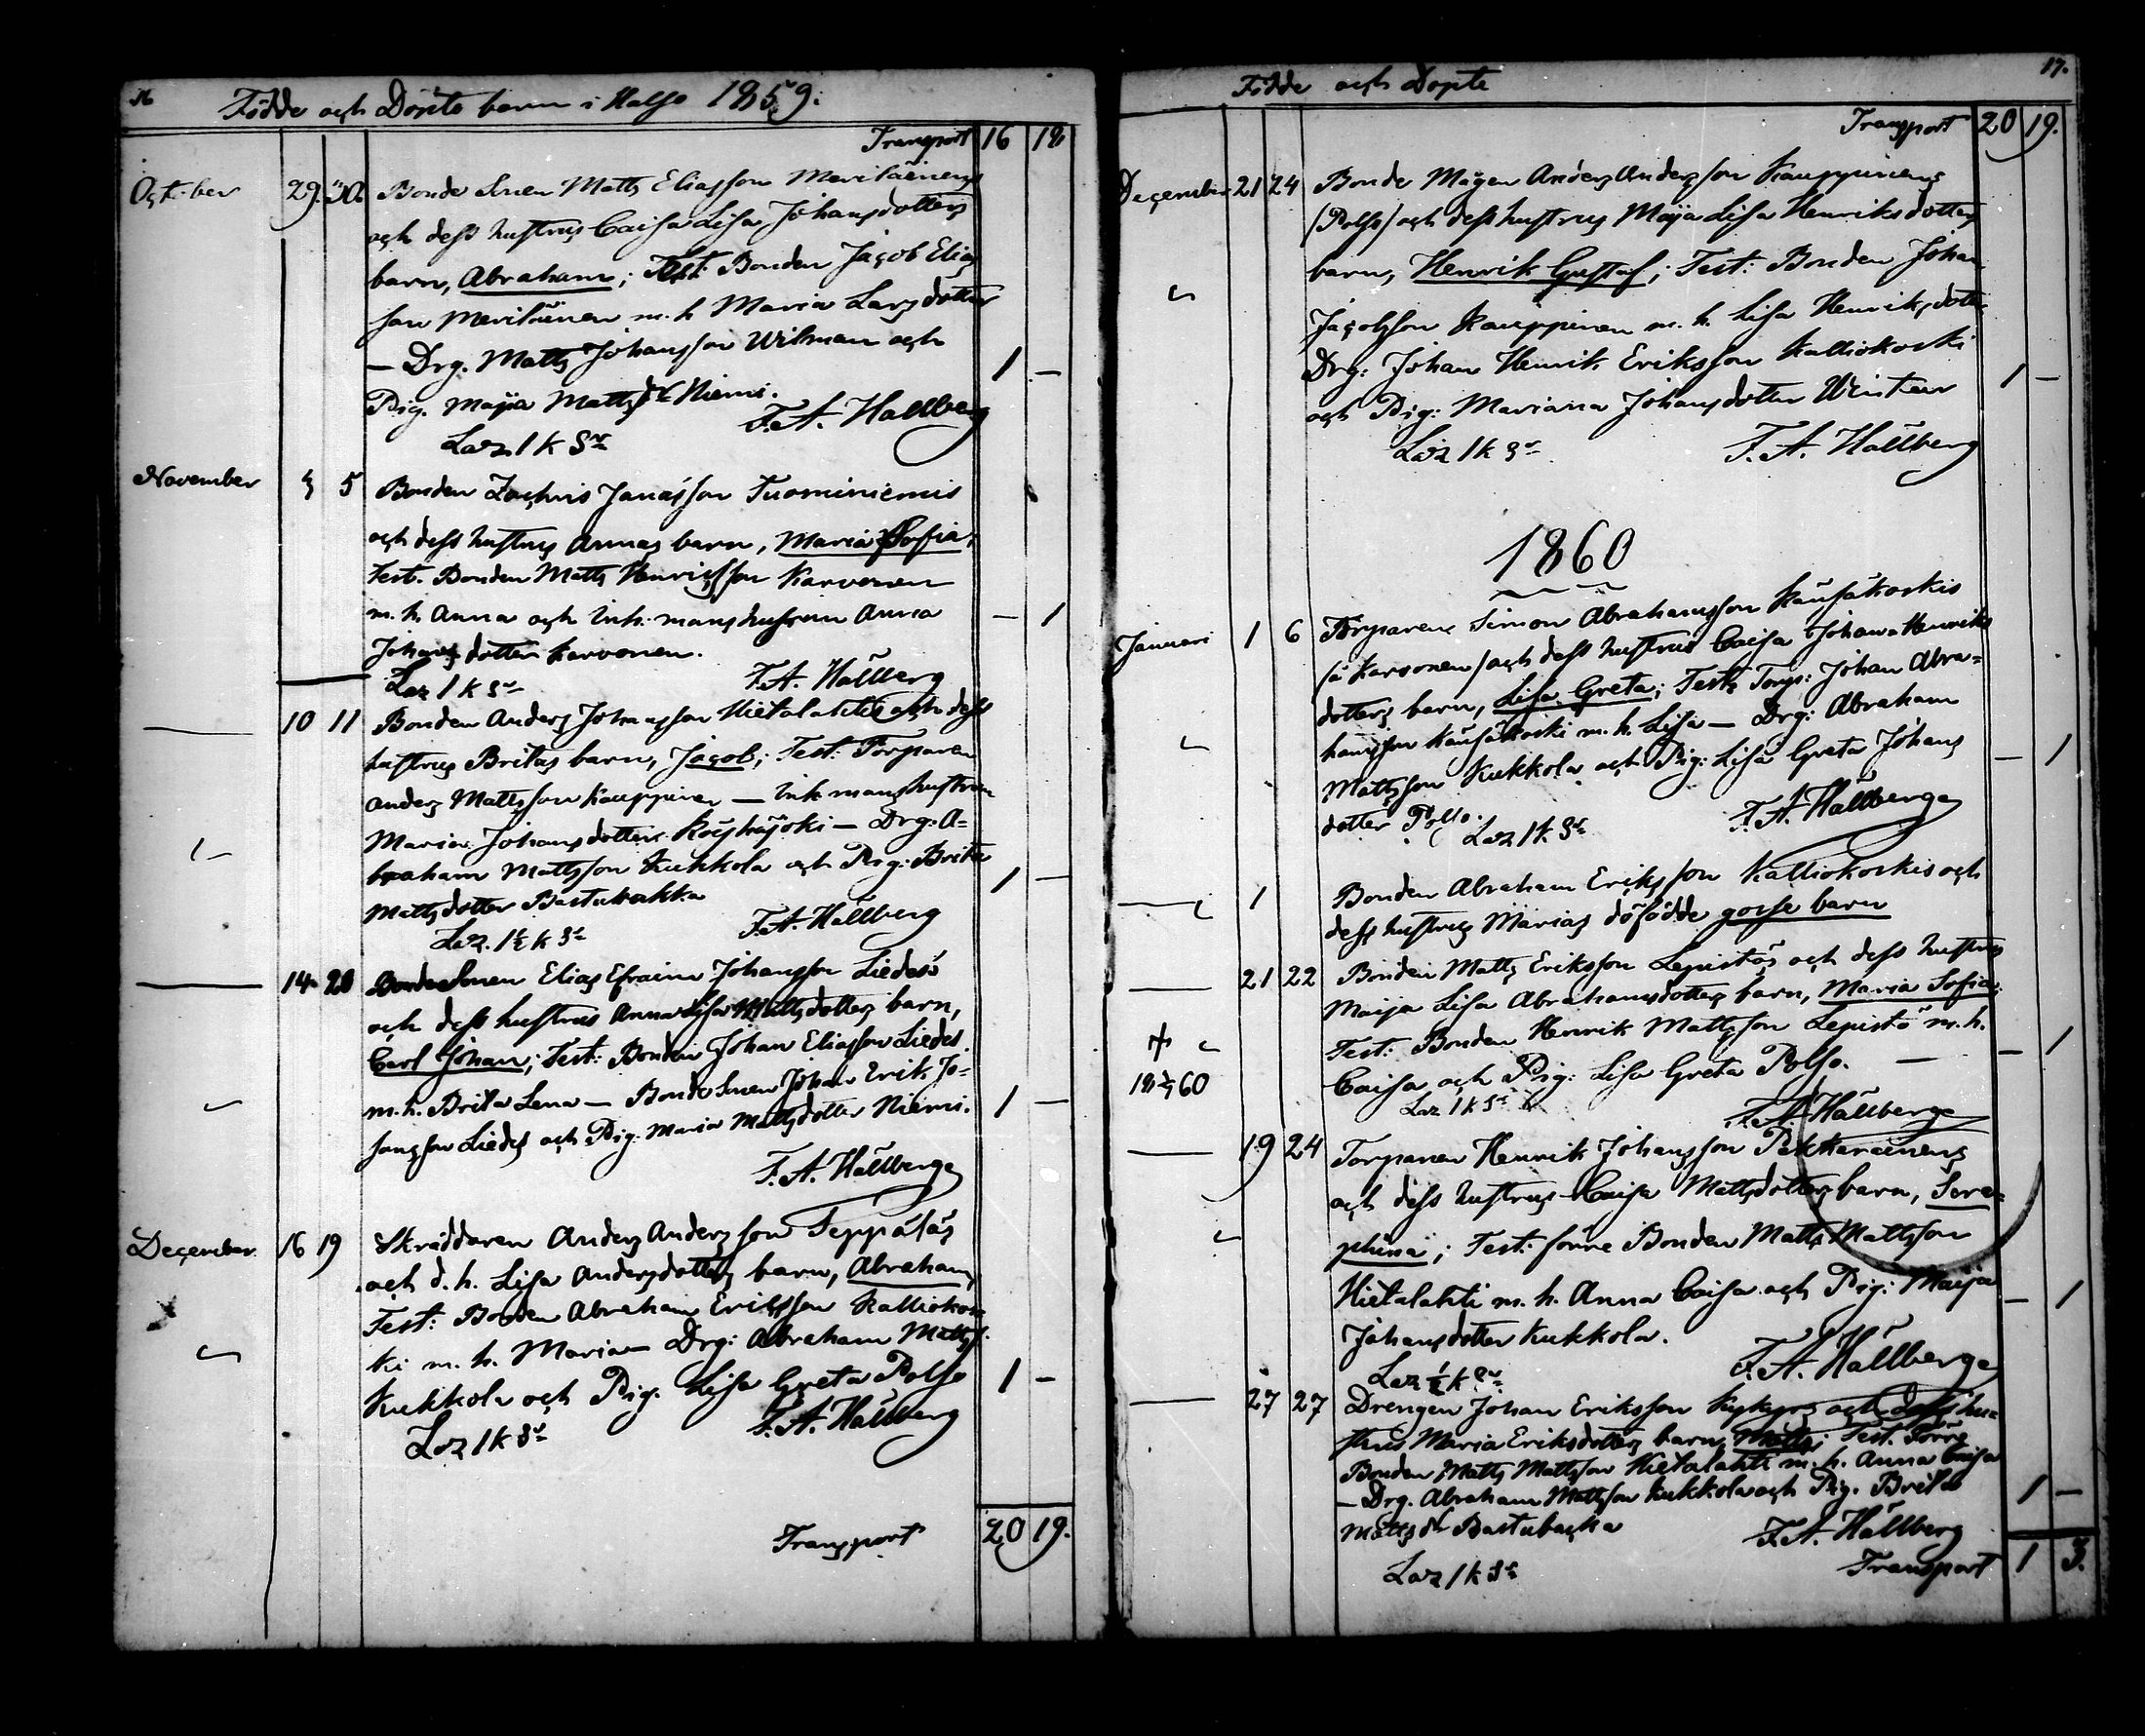 16
Födde och Döpte barn i Halso 1859.
Transport 16 18
October 29. 30. Bonde Sonen Matts Eliasson Meriläinens
och dess hustrus Caisa Lisa Johansdotters
barn, Abraham; Test: Bonden Jacob Elias
son Meriläinen m. h Maria Larsdotter
— Drg. Matts Johansson Wilman och
Pig. Maja Matts dr Niemi. 1 —
F. A. Hallberg
Laz 1 k Sr
November 3 5 Bonden Zachris Janasson Tuominiemis
och dess hustrus Annas barn, Maria Sofia;
Test. Bonden Matts Henricsson Karvonen
m. h. Anna och Inh. mans hustrun Anna — 1
Johansdotter Karvonen.
Laz 1 k Sr F. A. Hällberg
— 10 11 Bonden Anders Johansson Hietalahtis och dess
hustrus Britas barn, Jacob; Test: Torparen
Anders Mattsson Kauppinen — Inh mans hustrun
Maria Johansdotter — Drg. A=
braham Mattsson Kukkola och Pig: Brita 1 —
Mattsdotter Bastubakka
Laz. 1½ k Sr F. A. Hällberg
— 14 20 Bonde Sonen Elias Efraim Johansson Liedes
och dess hustrus Anna Lisa Mattsdotters barn,
Carl Johan; Test: Bonden Johan Eliasson Liedes
m. h. Brita Lena — Bonde Sonen Johan Erik Jo= 1 —
hansson Liedes och Pig. Maria Mattsdotter Niemi.
F. A. Hällberg
December 16 19 Skräddaren Anders Andersson Teppäläs
och d. h. Lisa Andersdotters barn, Abraham,
Test: Bonden Abraham Ericsson Kalliokos
ki m. h. Maria — Drg: Abraham Matts.
Kukkola och Pig. Lisa Greta Polso 1 —
Laz 1 k Sr F. A. Hällberg
Transport 20 19.
17.
Födde och Döpte
Transport 20 19.
December 21 24 Bonde Mågen Anders Andersson Kauppinens
(Polso) och dess hustrus Maja Lisa Henriksdotters
barn, Henrik Gustaf; Test: Bonden Johan
Jacobsson Kauppinen m. h. Lisa Henriksdotter
Drg: Johan Henrik Eriksson Kalliokoski
och Pig: Mariana Johansdotter Winter 1 —
Laz 1 k Sr F. A. Hällberg
1860
Januari 1 6 Torparens Simon Abrahamsson Känsäkoskis
(å Karvonen) och dess hustrus Caisa Johana Henriks
dotters barn, Lisa Greta; Test: Torp: Johan Abra=
hamsson Känsäkoski m. h. Lisa — Drg: Abraham
Mattsson Kukkola och Pig: Lisa Greta Johans — 1
dotter Polso. F. A. Hällberg
Laz 1 k Sr
— 1 Bonden Abraham Eriksson Kalliokoskis och
dess hustrus Marias döfödde gosse barn
— 21 22 Bonden Matts Eriksson Lepistös och dess hustrus
Maija Lisa Abrahamsdotters barn, Maria Sofia;
Test: Bonden Henrik Mattsson Lepistö m. h. — 1
Caisa och Pig: Lisa Greta Polso. —
Laz 1 k Sr F. A. Hällberg
— 19 24 Torparen Henrik Johansson Pekkarinens
och dess hustrus Caisa Mattsdotters barn, Sera=
phina; Test: förre Bonden Matts Mattsson
Hietalahti m. h. Anna Caisa och Pig: Maija — 1
Johansdotter Kukkola.
Laz ½ k Sr F. A. Hällberg
— 27 27 Drengen Johan Eriksson och dess hu=
strus Maria Eriksdotters barn, Matts; Test. Förre
Bonden Matts Mattsson Hietalahti m. h. Anna Caisa
— Drg. Abraham Mattsson Kukkola och Pig. Brita 1 —
Matts dr Bastubacka F. A. Hällberg
Laz 1 k Sr Transport 1 3.